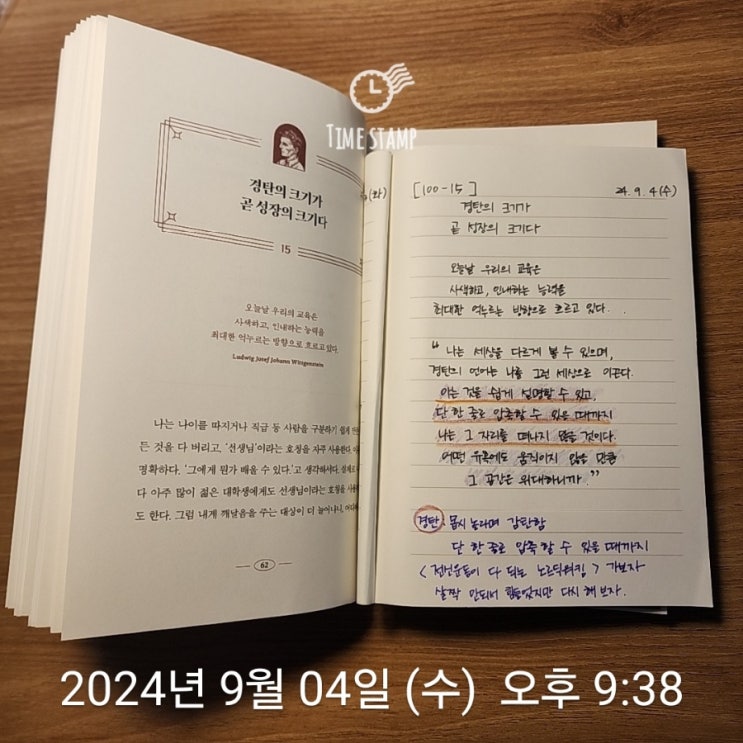 TIME STAMP
경탄의 크기가
곧 성장의 크기다
15
오늘날 우리의 교육은
사색하고, 인내하는 능력을
최대한 억누르는 방향으로 흐르고 있다.
Ludwig Josef Johann Wittgenstein
나는 나이를 따지거나 직급 등 사람을 구분하기 쉽게 만든
든 것을 다 버리고, '선생님'이라는 호칭을 자주 사용한다. 이
명확하다. '그에게 뭔가 배울 수 있다.'고 생각해서다. 실제로
다 아주 많이 젊은 대학생에게도 선생님이라는 호칭을 사용
도 한다. 그럼 내게 깨달음을 주는 대상이 더 늘어나니,
62
(화)
[100-15] 24. 9. 4 (수)
경탄의 크기가
곧 성장의 크기다
오늘날 우리의 교육은
사색하고, 인내하는 능력을
최대한 억누르는 방향으로 흐르고 있다.
" 나는 세상을 다르게 볼 수 있으며,
경탄의 언어는 나를 그런 세상으로 이끈다.
아는 것을 쉽게 설명할 수 있고,
단 한 줄로 압축할 수 있을 때까지
나는 그 자리를 떠나지 않을 것이다.
어떤 유혹에도 움직이지 않을 만큼
그 공간은 위대하니까 "
경탄: 몹시 놀라며 감탄함
단 한 줄로 압축할 수 있을 때까지
< 전신운동이 다 되는 노르딕워킹 > 가보자
살짝 안되서 힘들었지만 다시 해보자.
2024년 9월 04일 (수) 오후 9:38